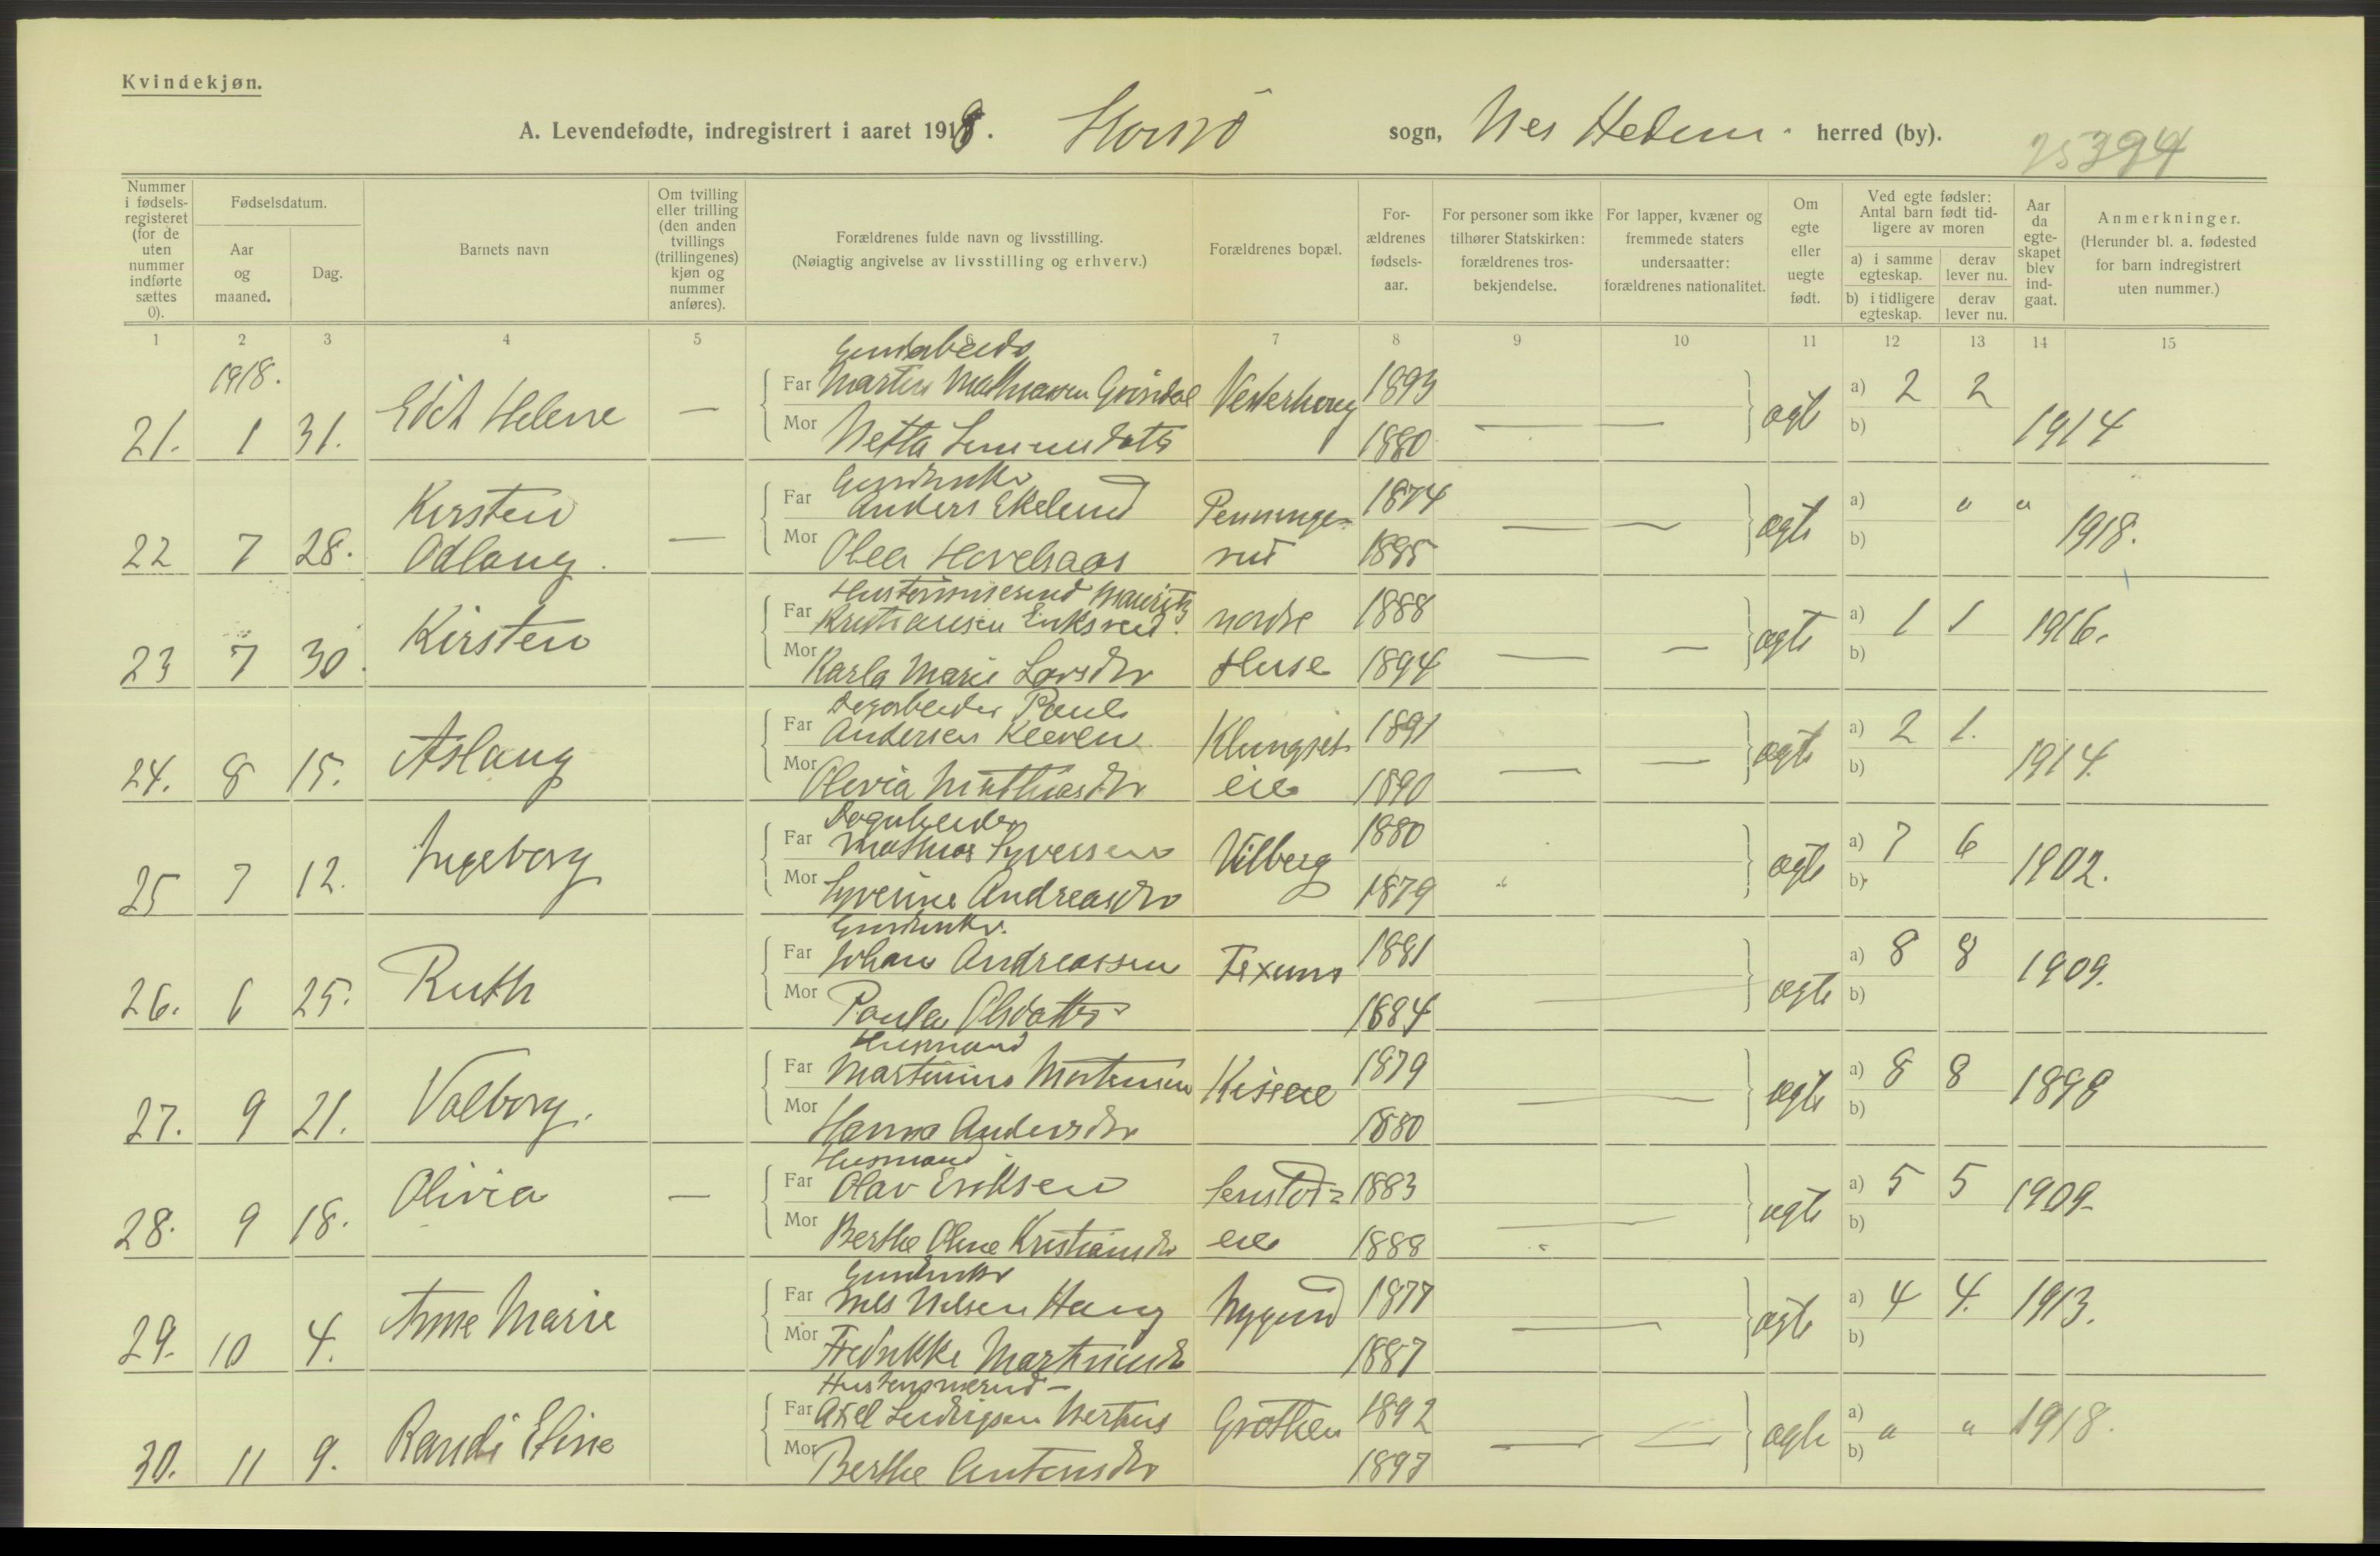 Kvindekjøn.
A. Levendefødte, indregistrert i aaret 1918. sogn, Nes Hedem. herred (by).
25394
Nummer i fødsels-registeret (for de uten nummer indførte sættes 0).
Fødselsdatum.
Aar og maaned.
Dag.
Barnets navn
Om tvilling eller trilling (den anden tvillings (trillingenes) kjøn og nummer anføres).
Forældrenes fulde navn og livsstilling.
(Nøiagtig angivelse av livsstilling og erhverv.)
Forældrenes bopæl.
For-ældrenes fødsels-aar.
For personer som ikke tilhører Statskirken: forældrenes tros-bekjendelse.
For lapper, kvæner og fremmede staters undersaatter: forældrenes nationalitet.
Om egte eller uegte født.
Ved egte fødsler: Antal barn født tid-ligere av moren
a) i samme egteskap.
derav lever nu.
b) i tidligere egteskap.
derav lever nu.
Aar da egte-skapet blev ind-gaat.
Anmerkninger.
(Herunder bl. a. fødested for barn indregistrert uten nummer.)
1 2 3 4 5 6 7 8 9 10 11 12 13 14 15
1918.
21. 1 31. Edit Helene —
Far Martin Mathiassen Grindal Vesterhaug 1893 — — egte a) 2 2 1914
Mor Netta 1880 b)
22 7 28. Kirsten Odlaug. —
Far Anders Ekelund Penninge- 1874 — — egte a) " " 1918.
Mor Olea Hovelsaas rud 1895 b)
Mauritz
23 7 30. Kirsten
Far Kristiansen Eriksrud. nordre 1888 — — egte a) 1 1 1916.
Mor Karla Marie Larsdtr Huse 1894 b)
Dagarbeider Paul
24. 8 15. Aslaug
Far Andersen Kleven 1891 — — egte a) 2 1. 1914.
Mor Olevia Mathiasdtr eie 1890 b)
Dagarbeider
25 7 12. Ingeborg
Far Mathias Syversen Vilberg 1880 egte a) 7 6 1902.
Mor Syverine Andreasdtr 1879 " b)
Gardbruker.
26. 6 25. Ruth
Far Johan Andreassen Texum 1881 — egte a) 8 8 1909.
Mor Paula Olsdatter 1884 b)
Husmand
27. 9 21. Valborg.
Far Martinius Mortensen 1879 — — egte a) 8 8 1898
Mor Hanna Andersdtr 1880 b)
Husmand
28. 9 18. Olivia —
Far Olav Eriksen 1883 — egte a) 5 5 1909.
Mor Berthe Oline Kristiansdtr eie 1888 b)
Gardbruker
29. 10 4. Anne Marie
Far Nils Nilsen Haug Nygaard 1877 — egte a) 4 4. 1913.
Mor Fredrikke 1887 b)
30. 11 9. Randi Eline
Far Axel Ludvigsen 1892 — — egte a) " " 1918.
Mor Berthe Antonsdtr 1897 b)